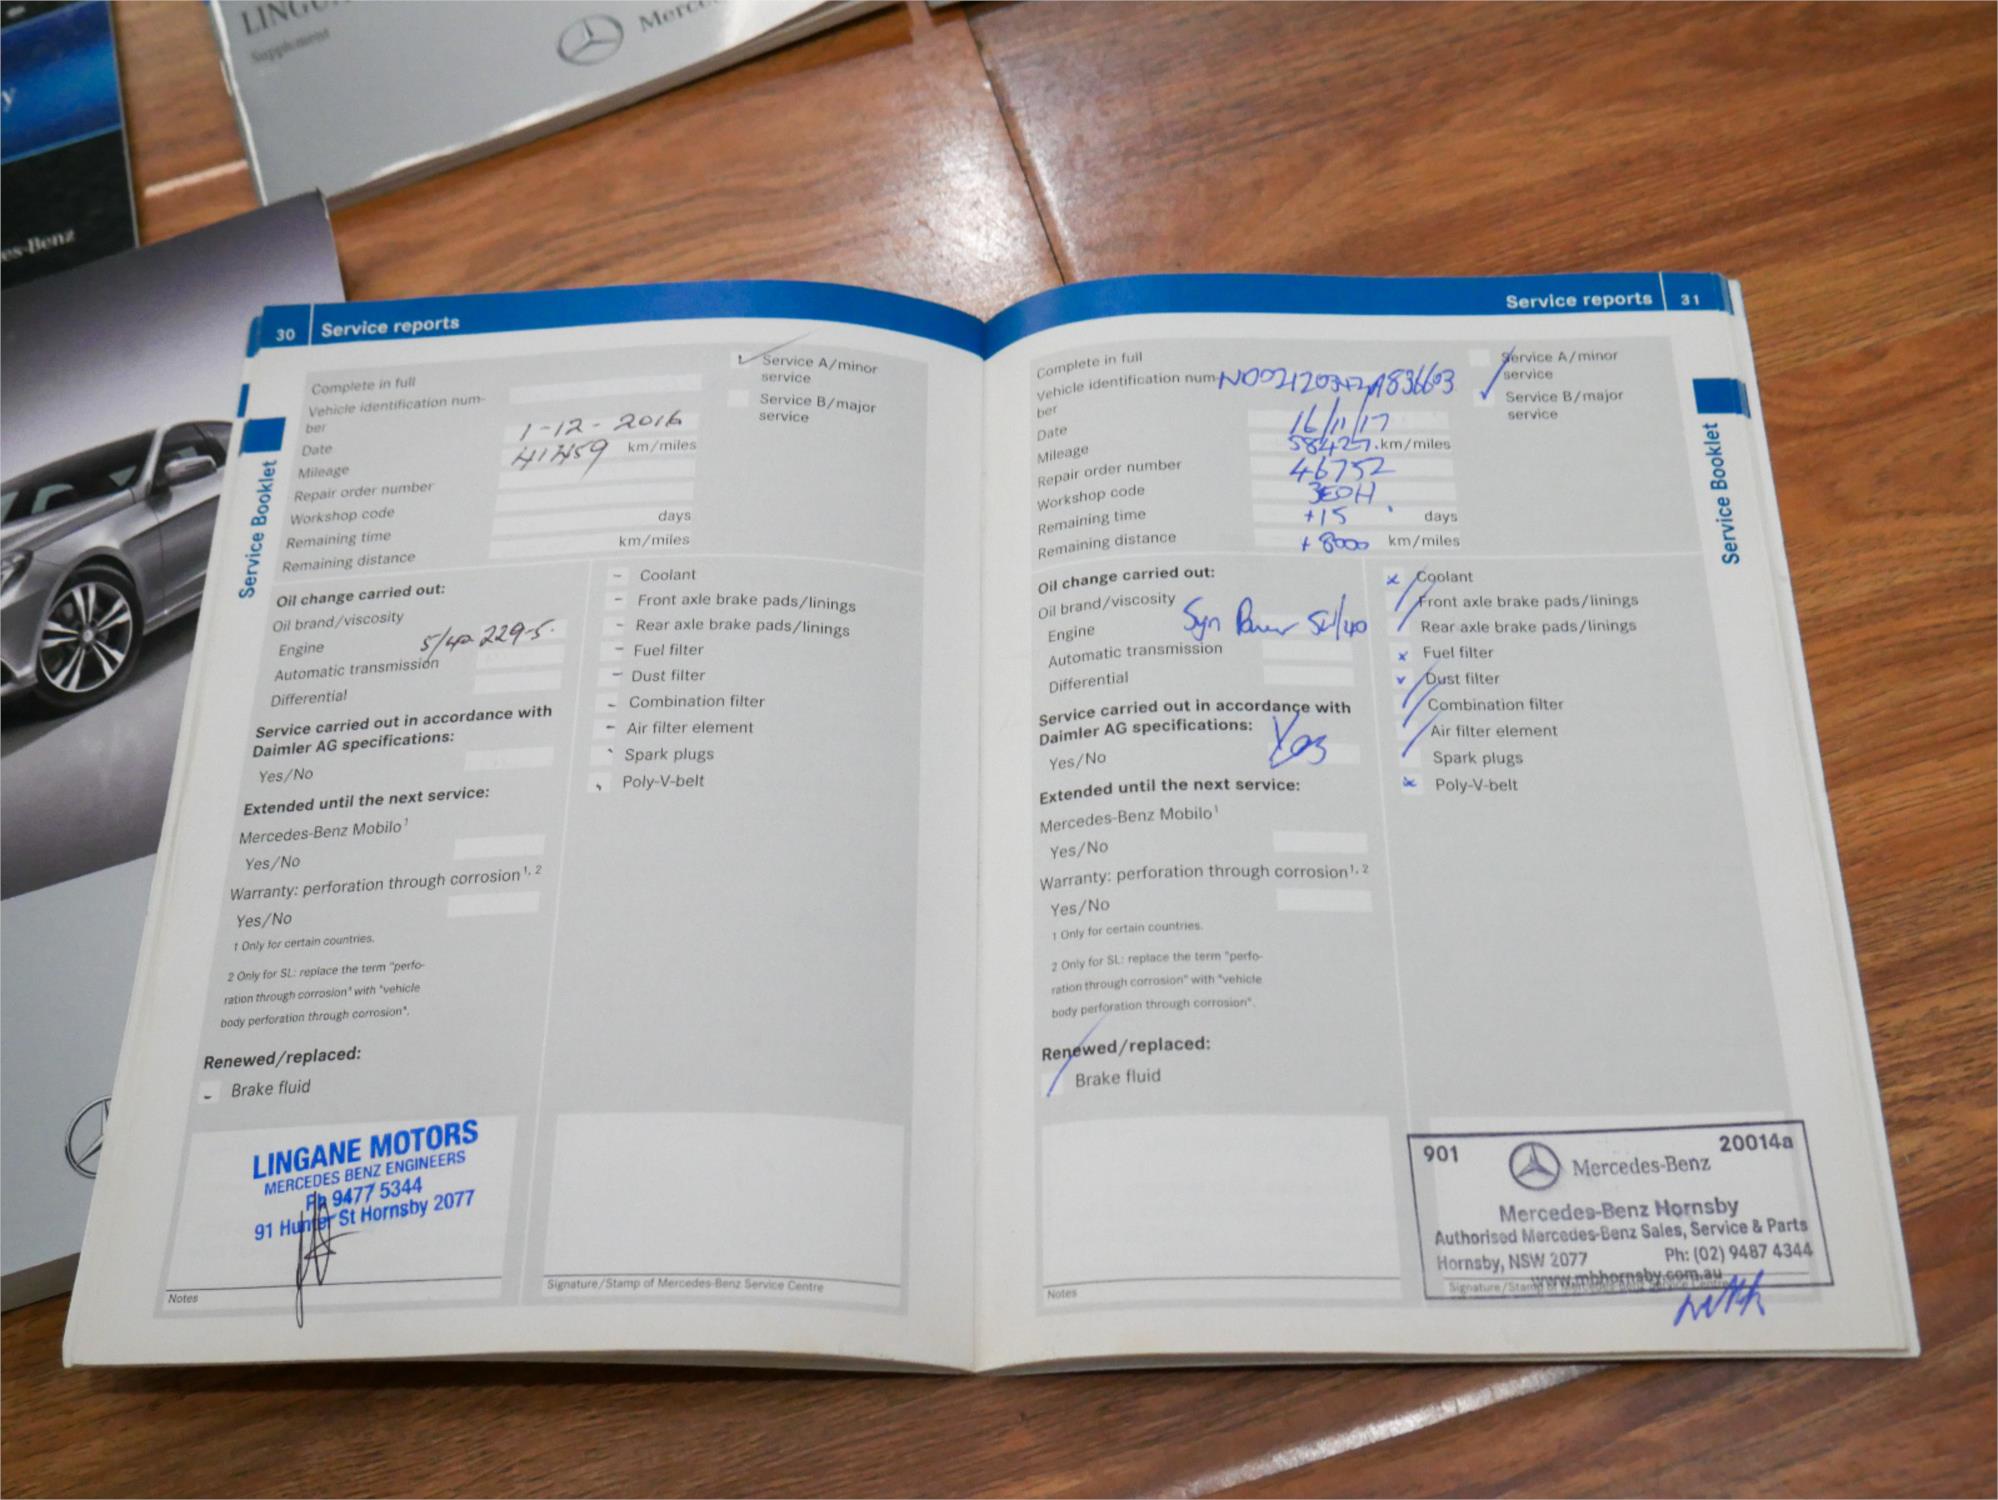 LINGU
Supplement
Merce
y
es-Benz
30 Service reports
Complete in full
Service A/minor
service
Vehicle identification num-
ber
Service B/major
service
Date 1-12-2016
Mileage 41459 km/miles
Repair order number
Workshop code
Remaining time days
Remaining distance km/miles
Oil change carried out:
Oil brand/viscosity
Engine 5/40 229-5.
Automatic transmission
Differential
Service carried out in accordance with
Daimler AG specifications:
Yes/No
Extended until the next service:
Mercedes-Benz Mobilo1
Yes/No
Warranty: perforation through corrosion1, 2
Yes/No
1 Only for certain countries.
2 Only for SL: replace the term "perfo-
ration through corrosion" with "vehicle
body perforation through corrosion".
Renewed/replaced:
- Brake fluid
- Coolant
- Front axle brake pads/linings
- Rear axle brake pads/linings
- Fuel filter
- Dust filter
- Combination filter
- Air filter element
Spark plugs
Poly-V-belt
LINGANE MOTORS
MERCEDES BENZ ENGINEERS
Ph 9477 5344
91 Hunter St Hornsby 2077
Notes
Signature/Stamp of Mercedes-Benz Service Centre
Service Booklet
Service reports 31
Complete in full
Service A/minor
service
Vehicle identification num-
ber
Service B/major
service
Date 16/11/17
Mileage 58427 km/miles
Repair order number 46752
Workshop code 3EOH
Remaining time +15 days
Remaining distance +8000 km/miles
Oil change carried out:
Oil brand/viscosity
Engine Syn Power 5W/40
Automatic transmission
Differential
Service carried out in accordance with
Daimler AG specifications:
Yes/No Yes
Extended until the next service:
Mercedes-Benz Mobilo1
Yes/No
Warranty: perforation through corrosion1, 2
Yes/No
1 Only for certain countries.
2 Only for SL: replace the term "perfo-
ration through corrosion" with "vehicle
body perforation through corrosion".
Renewed/replaced:
Brake fluid
x Coolant
Front axle brake pads/linings
Rear axle brake pads/linings
x Fuel filter
Dust filter
Combination filter
Air filter element
Spark plugs
x Poly-V-belt
Notes
901 Mercedes-Benz 20014a
Mercedes-Benz Hornsby
Authorised Mercedes-Benz Sales, Service & Parts
Hornsby, NSW 2077 Ph: (02) 9487 4344
www.mbhornsby.com.au
Signature/Stamp of Mercedes-Benz Service Centre
Service Booklet